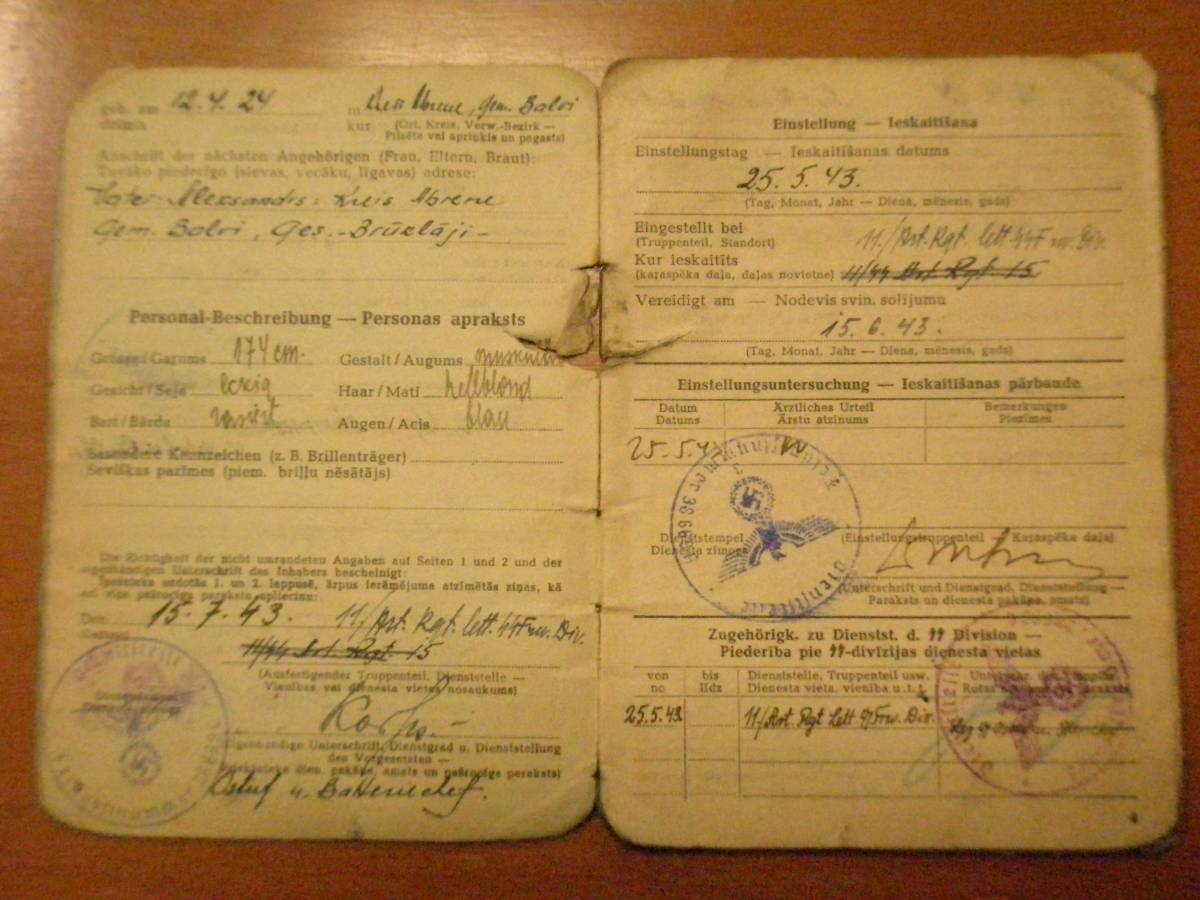 geb. am 12.4.24 in Kreis Abrene, Gem. Balvi
dzimis kur (Ort, Kreis, Verw.-Bezirk —
Pilsēta vai apriņķis un pagasts)
Anschrift der nächsten Angehörigen (Frau, Eltern, Braut):
Tuvāko piederīgo (sievas, vecāku, līgavas) adrese:
Vater: Alexsandrs: Kreis Abrene
Gem. Balvi, Ges.-Brūzlāji-
Personal-Beschreibung — Personas apraksts
Grösse/Garums 174 cm. Gestalt/Augums
Gesicht/Seja eckig Haar/Mati hellblond
Bart/Bārda rasiert Augen/Acis blau
Besondere Kennzeichen (z. B. Brillenträger)
Sevišķas pazīmes (piem. briļļu nēsātājs)
Die Richtigkeit der nicht umrandeten Angaben auf Seiten 1 und 2 und der
eigenhändigen Unterschrift des Inhabers bescheinigt:
1. un 2. lappusē, ārpus ierāmējuma atzīmētās ziņas, kā
arī viņa pašrocīgo parakstu apliecinu:
Den 15.7.43. 11./Art. Rgt. lett. ᛋᛋ Frw. Div.
11/ᛋᛋ Art. Rgt. 15
(Ausfertigender Truppenteil, Dienststelle —
Vienības vai dienesta vietas nosaukums)
(Eigenhändige Unterschrift, Dienstgrad u. Dienststellung
des Vorgesetzten —
dien. pakāpe, amats un pašrocīgs paraksts)
Ostuf u. Batteriechef.
Einstellung — Ieskaitīšana
Einstellungstag — Ieskaitīšanas datums
25.5.43.
(Tag, Monat, Jahr — Diena, mēnesis, gads)
Eingestellt bei 11./Art. Rgt. lett. ᛋᛋ Frw. Div.
(Truppenteil, Standort)
Kur ieskaitīts
(kaŗaspēka daļa, daļas novietne) 11/ᛋᛋ Art. Rgt. 15
Vereidigt am — Nodevis svin. solījumu
15.6.43.
(Tag, Monat, Jahr — Diena, mēnesis, gads)
Einstellungsuntersuchung — Ieskaitīšanas pārbaude
Datum Ärztliches Urteil Bemerkungen
Datums Ārstu atzinums Piezīmes
25.5.43 kv
Dienststempel (Einstellungstruppenteil — Kaŗaspēka daļa)
Dienesta zīmogs
(Unterschrift und Dienstgrad, Dienststellung —
Paraksts un dienesta pakāpe, amats)
Zugehörigk. zu Dienstst. d. ᛋᛋ Division —
Piederība pie ᛋᛋ-divīzijas dienesta vietas
von bis Dienststelle, Truppenteil usw.
no līdz Dienesta vieta, vienība u.t.t.
25.5.43 11/Art. Rgt Lett ᛋᛋ Frw. Div.
4